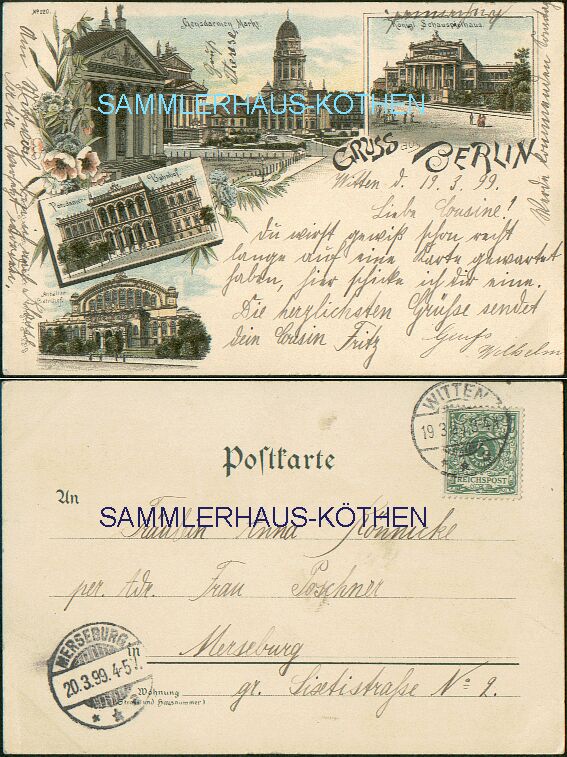 No 220.
Gensdarmen Markt.
Königl. Schauspielhaus.
SAMMLERHAUS-KÖTHEN
GRUSS aus BERLIN
Potsdamer Bahnhof.
Anhalter Bahnhof.
Witten d. 19.3.99.
Liebe Cousine!
Du wirst gewiß schon recht
lange auf eine Karte gewartet
haben, hier schicke ich dir eine.
Die herzlichsten Grüße sendet
dein Cousin Fritz
Gruß
Wilhelm
WITTEN
19.3.
REICHSPOST
Postkarte
An
SAMMLERHAUS-KÖTHEN
Fräulein Anna Könnicke
per. Adr. Frau Poschner
in Merseburg
MERSEBURG
20.3.99.4-5
Wohnung
(Straße und Hausnummer)
gr. Sixtistraße No 2.